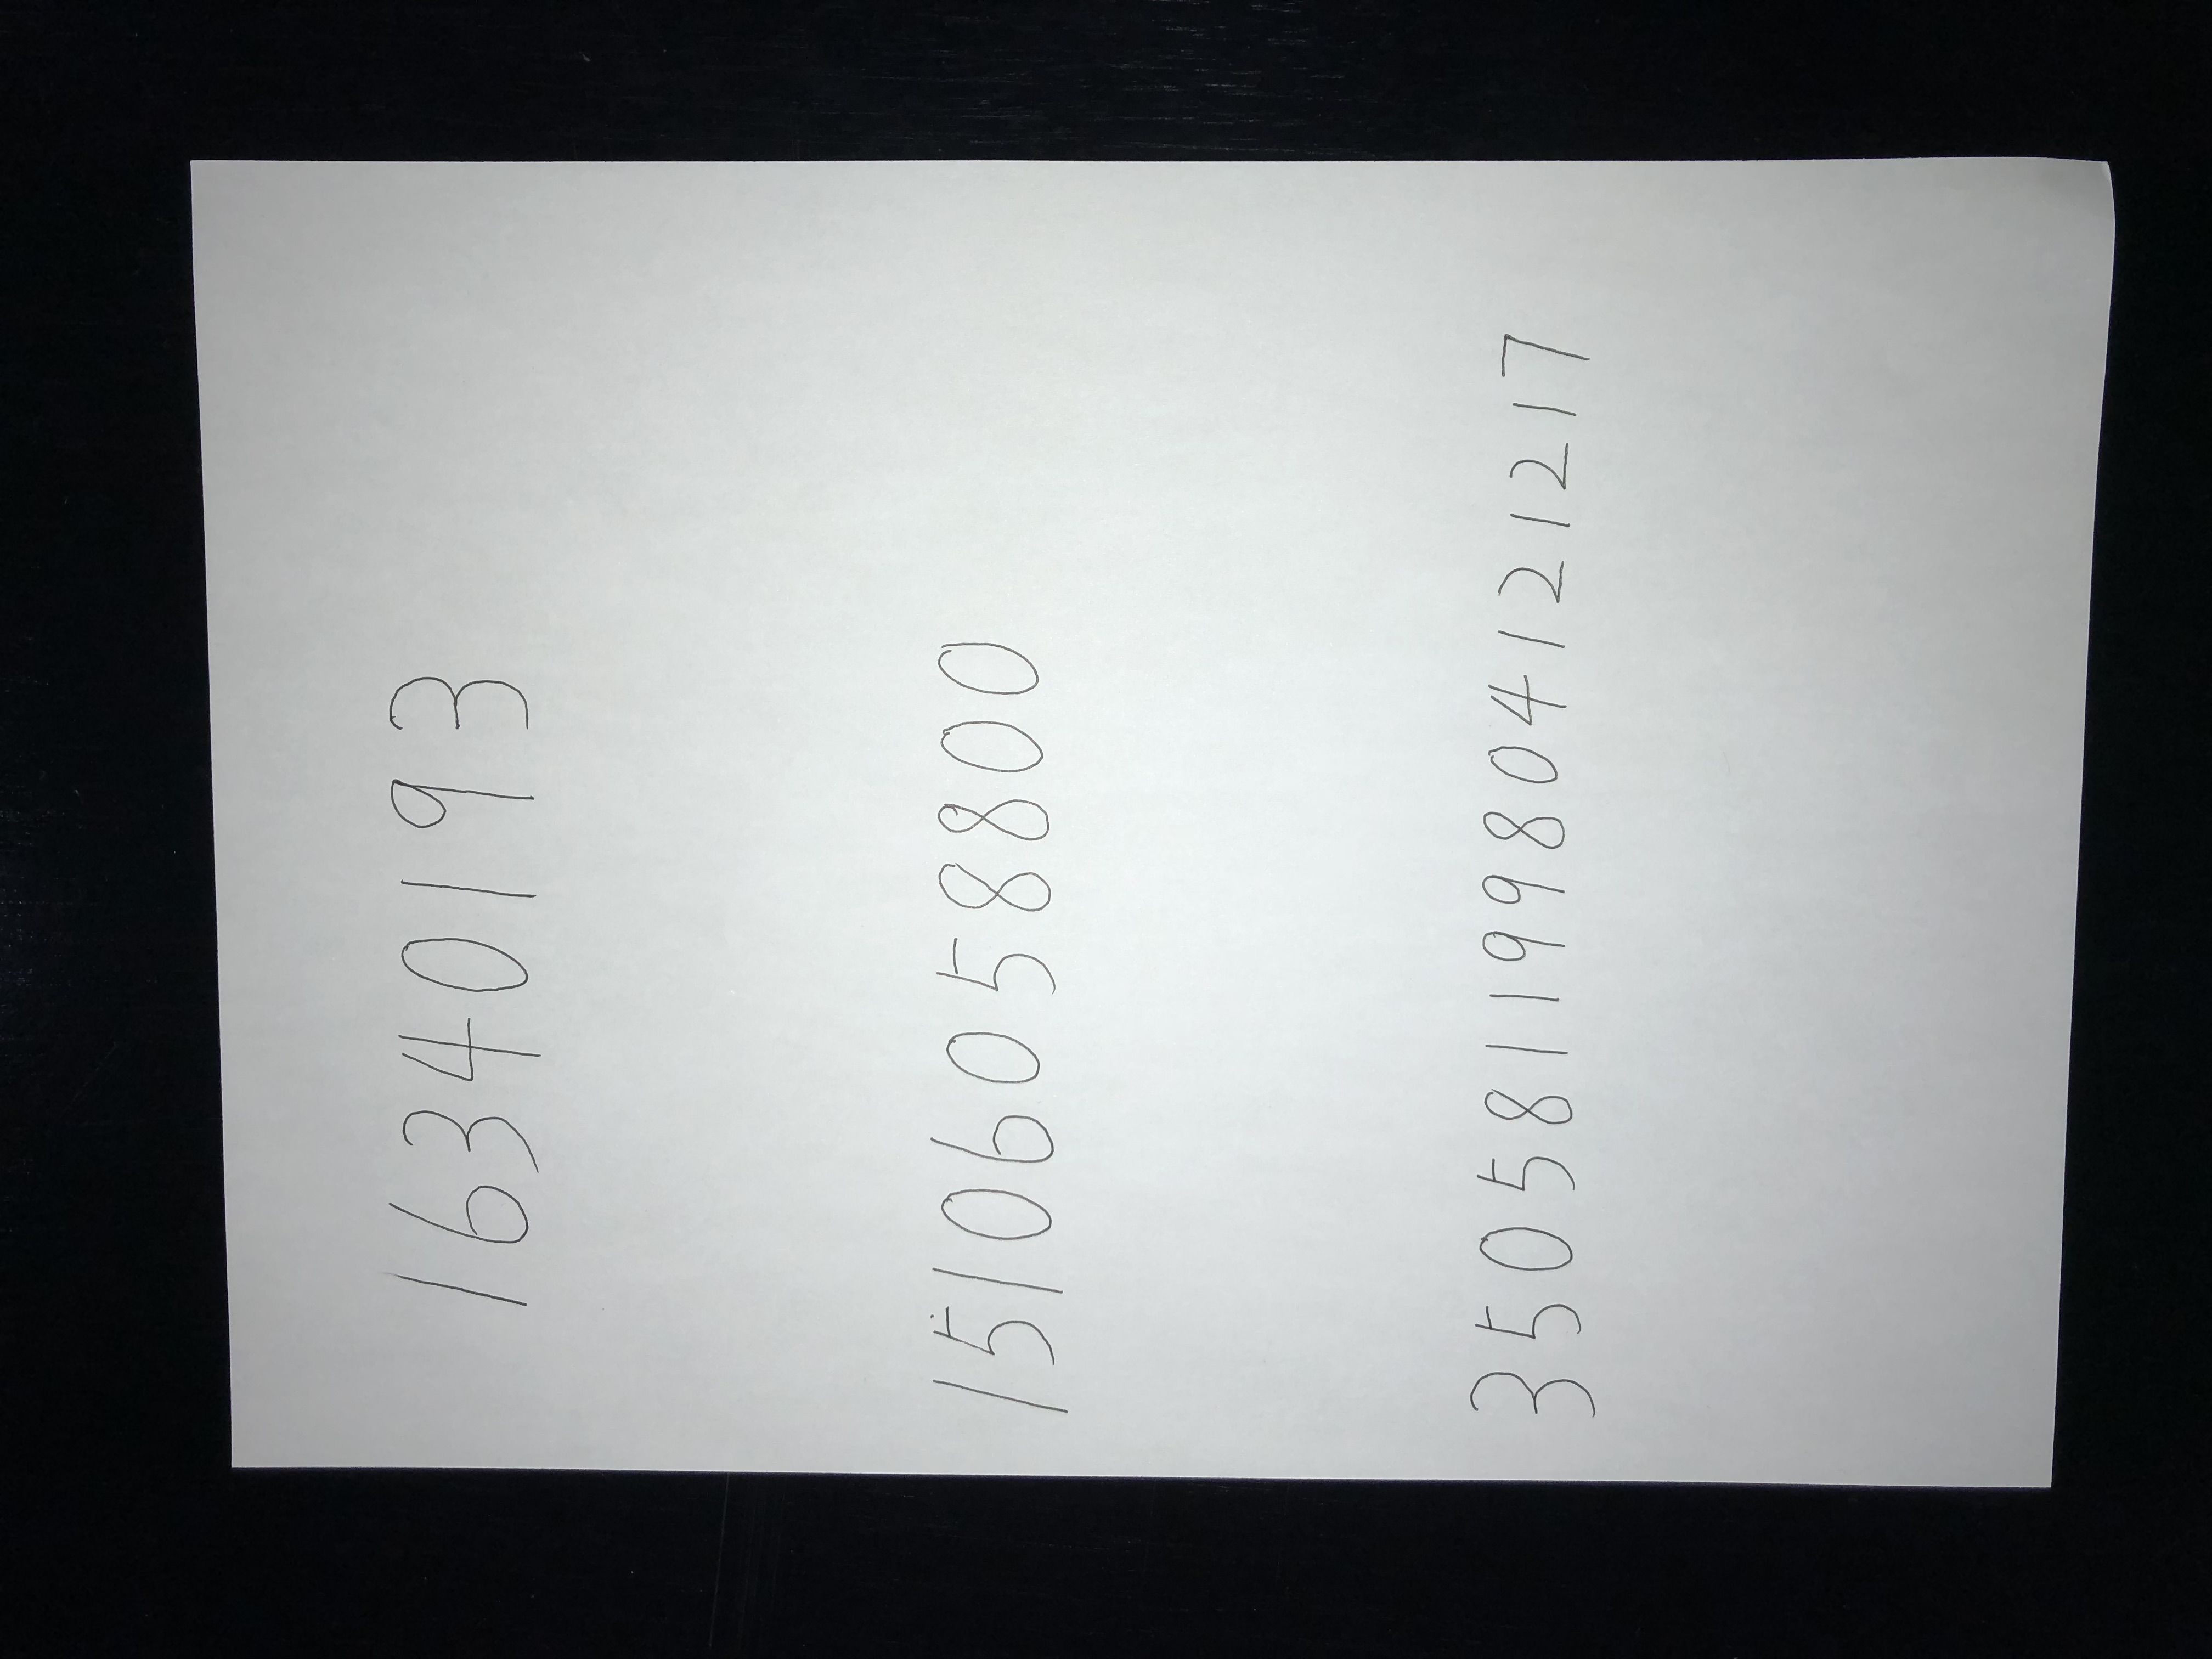 16340193
15106058800
350581199804121217